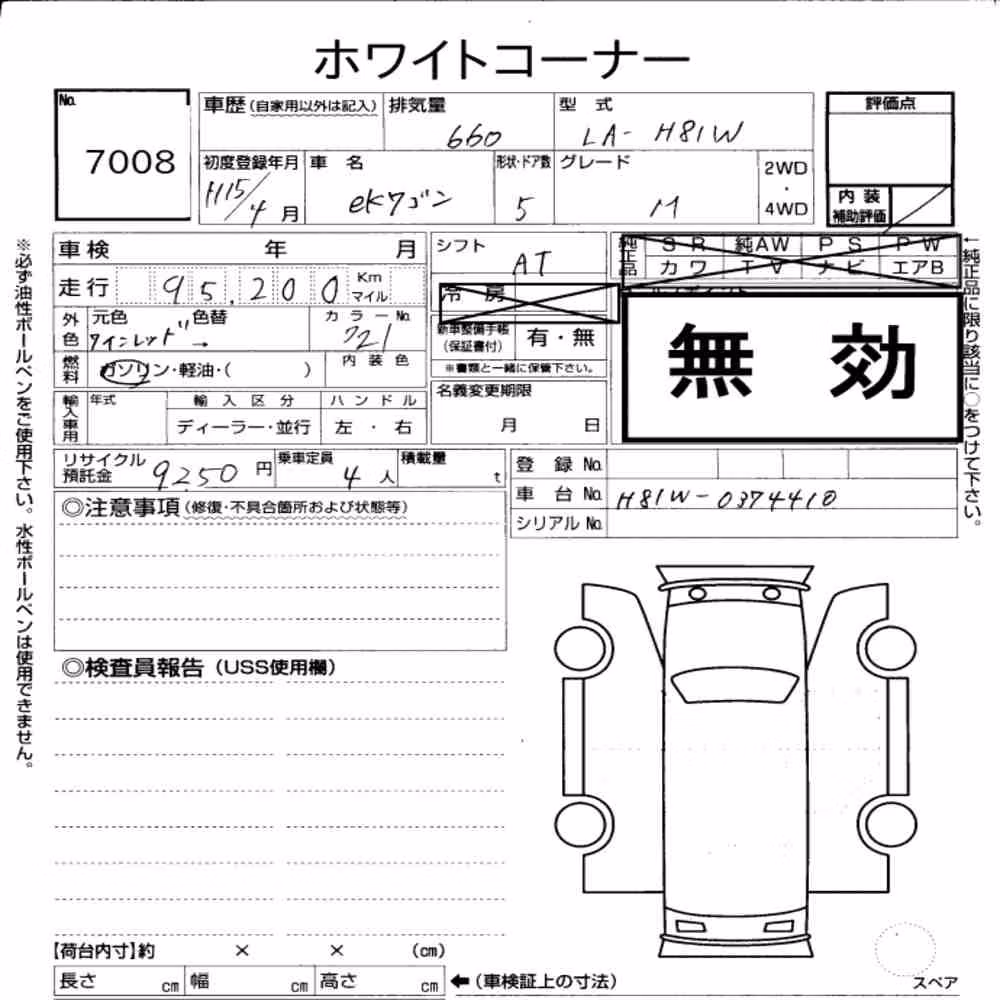 ホワイトコーナー
No. 7008
車歴(自家用以外は記入) 排気量 660 型式 LA-H81W
評価点
初度登録年月 H15/4月 車名 eKワゴン 形状・ドア数 5 グレード M 2WD・4WD
内装補助評価
車検 年 月 シフト AT
純正品 SR 純AW PS PW
カワ TV ナビ エアB
走行 95,200 Km マイル
冷房
外色 元色 ワインレッド 色替 → カラーNo. 721
新車整備手帳(保証書付) 有・無
※書類と一緒に保管下さい。
無効
燃料 ガソリン・軽油・( ) 内装色
名義変更期限 月 日
輸入車用 年式 輸入区分 ディーラー・並行 ハンドル 左・右
リサイクル預託金 9250円 乗車定員 4人 積載量 t
登録No.
車台No. H81W-0374410
シリアルNo.
◎注意事項(修復・不具合箇所および状態等)
◎検査員報告(USS使用欄)
【荷台内寸】約 × × (cm)
長さ cm 幅 cm 高さ cm ←(車検証上の寸法)
スペア
※必ず油性ボールペンをご使用下さい。水性ボールペンは使用できません。
←純正品に限り該当に○をつけて下さい。